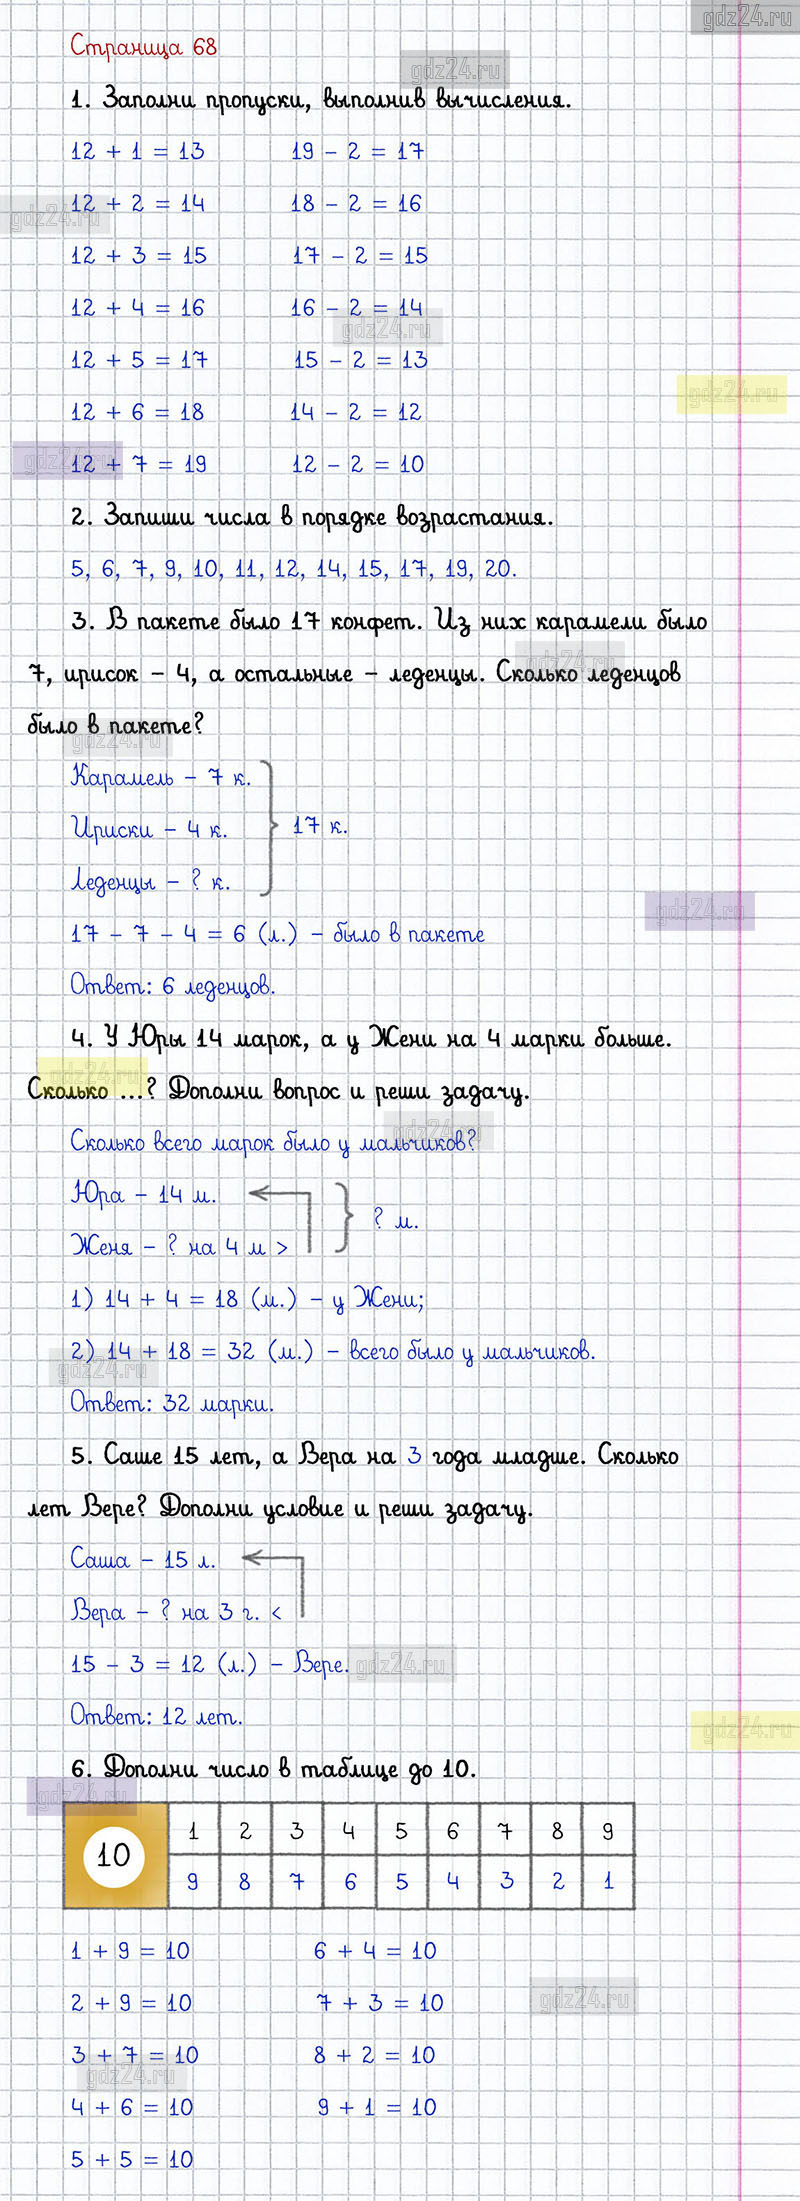 gdz24.ru
Страница 68
gdz24.ru
1. Заполни пропуски, выполнив вычисления.
12 + 1 = 13 19 - 2 = 17
12 + 2 = 14 18 - 2 = 16
gdz24.ru
12 + 3 = 15 17 - 2 = 15
12 + 4 = 16 16 - 2 = 14
gdz24.ru
12 + 5 = 17 15 - 2 = 13
gdz24.ru
12 + 6 = 18 14 - 2 = 12
12 + 7 = 19 12 - 2 = 10
gdz24.ru
2. Запиши числа в порядке возрастания.
5, 6, 7, 9, 10, 11, 12, 14, 15, 17, 19, 20.
3. В пакете было 17 конфет. Из них карамели было
gdz24.ru
7, ирисок – 4, а остальные – леденцы. Сколько леденцов
было в пакете?
gdz24.ru
Карамель – 7 к.
Ириски – 4 к. 17 к.
Леденцы – ? к.
gdz24.ru
17 - 7 - 4 = 6 (л.) – было в пакете
Ответ: 6 леденцов.
4. У Юры 14 марок, а у Жени на 4 марки больше.
gdz24.ru
Сколько ...? Дополни вопрос и реши задачу.
gdz24.ru
Сколько всего марок было у мальчиков?
Юра – 14 м.
? м.
Женя – ? на 4 м >
1) 14 + 4 = 18 (м.) – у Жени;
2) 14 + 18 = 32 (м.) – всего было у мальчиков.
gdz24.ru
Ответ: 32 марки.
5. Саше 15 лет, а Вера на 3 года младше. Сколько
лет Вере? Дополни условие и реши задачу.
Саша – 15 л.
Вера – ? на 3 г. <
15 - 3 = 12 (л.) – Вере.
gdz24.ru
Ответ: 12 лет.
gdz24.ru
6. Дополни число в таблице до 10.
gdz24.ru
10
1 2 3 4 5 6 7 8 9
9 8 7 6 5 4 3 2 1
1 + 9 = 10 6 + 4 = 10
2 + 9 = 10 7 + 3 = 10
gdz24.ru
3 + 7 = 10 8 + 2 = 10
gdz24.ru
4 + 6 = 10 9 + 1 = 10
5 + 5 = 10